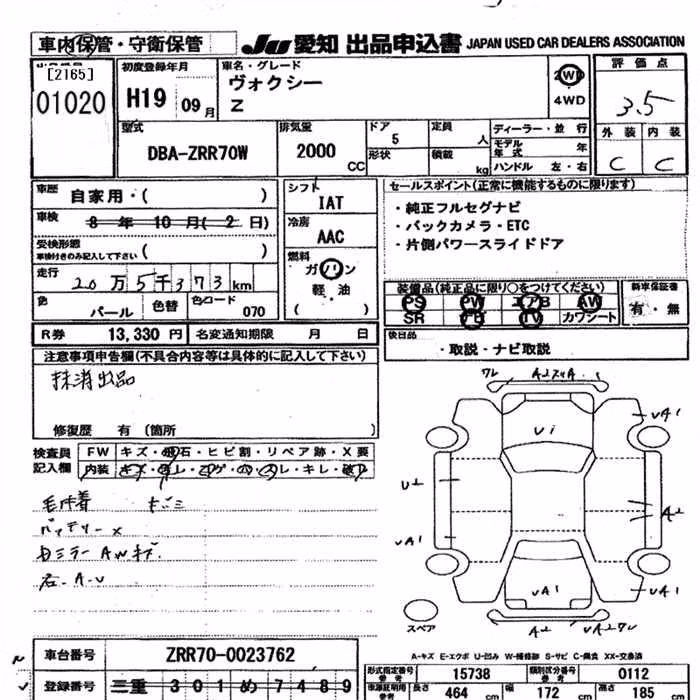 車内保管・守衛保管
JU 愛知 出品申込書 JAPAN USED CAR DEALERS ASSOCIATION
[2165]
01020
初度登録年月
H19 09月
車名・グレード
ヴォクシー
Z
2WD
4WD
評価点
3.5
外装 内装
C C
型式
DBA-ZRR70W
排気量
2000 CC
ドア
5
形状
定員 人
積載 kg
ディーラー・並行
モデル年式 年
ハンドル 左・右
車歴
自家用・( )
車検
8年10月(2日)
受検形態
車検付きのみ記入して下さい ( )
走行
20万5千373km
色
パール
色替
色コード
070
シフト
IAT
冷房
AAC
燃料
ガソリン
軽油
( )
セールスポイント(正常に機能するものに限ります)
・純正フルセグナビ
・バックカメラ・ETC
・片側パワースライドドア
装備品(純正品に限り○をつけてください)
PS PW エアB AW
SR TV カワシート
新車保証書
有・無
R券 13,330円 名変通知期限 月 日
後日品
・取説・ナビ取説
注意事項申告欄(不具合内容等は具体的に記入して下さい)
抹消出品
修復歴 有 (箇所
検査員記入欄
FW キズ・飛石・ヒビ割・リペア跡・X要
内装
バッテリー×
右ミラー AWキズ
石-A-U
ワレ
Ui
UA1
U2
A2
UA1
UA1
UA1
A2
スペア
A-キズ E-エクボ U-凹み W-補修跡 S-サビ C-腐食 XX-交換済
車台番号 ZRR70-0023762
登録番号 三重 301 め 7489
形式指定番号 15738 類別区分番号 0112
長さ 464 cm 幅 172 cm 高さ 185 cm